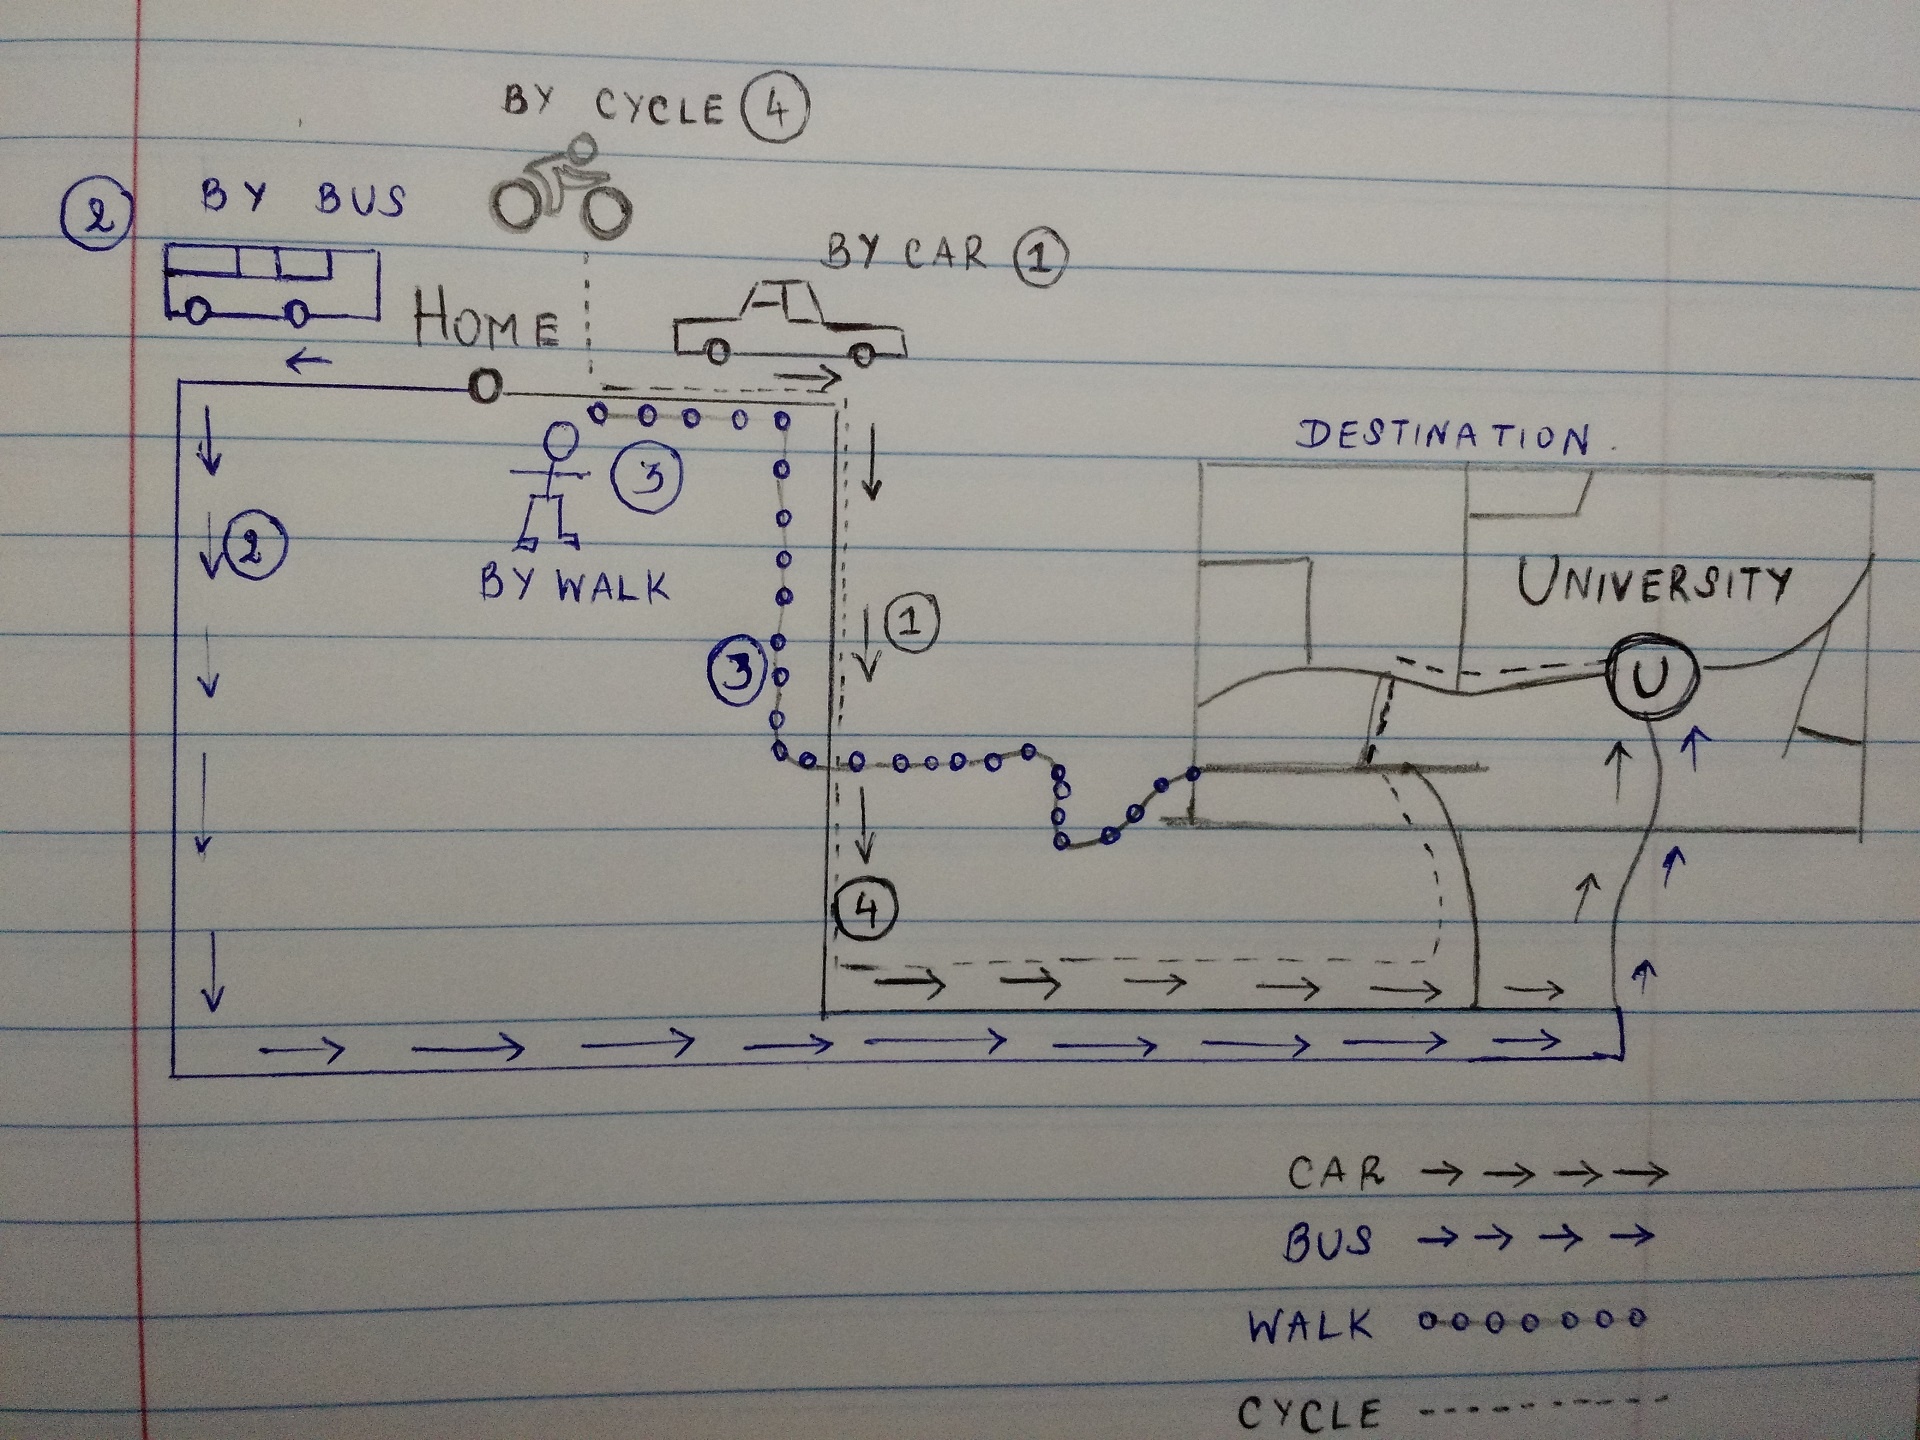 BY CYCLE 4
2 BY BUS
BY CAR 1
HOME
DESTINATION.
3
2
BY WALK
UNIVERSITY
1
3
U
4
CAR
BUS
WALK
CYCLE